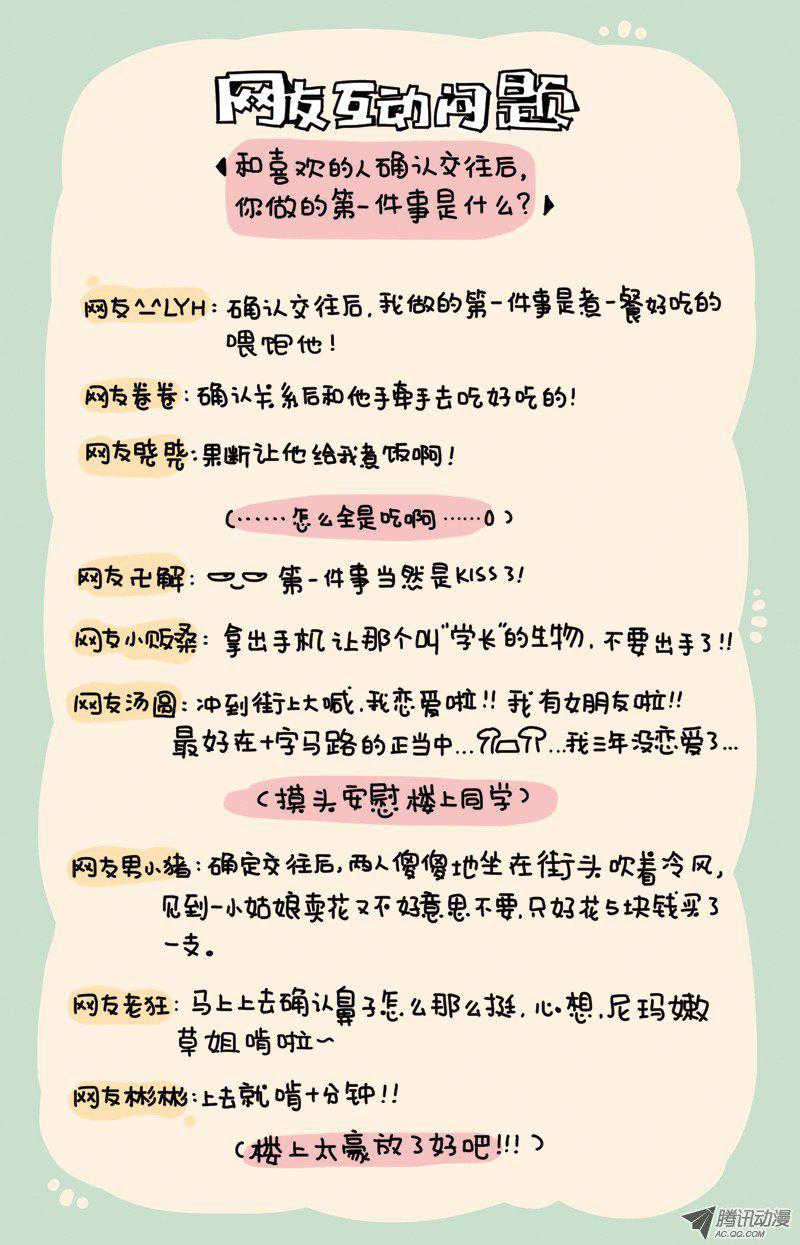 网友互动问题
和喜欢的人确认交往后,
你做的第一件事是什么?
网友^_^LYH：确认交往后,我做的第一件事是煮一餐好吃的
喂饱他!
网友卷卷：确认关系后和他手牵手去吃好吃的!
网友晓晓：果断让他给我煮饭啊!
(……怎么全是吃啊……o)
网友卍解： 第一件事当然是KISS 3!
网友小贩桑：拿出手机让那个叫"学长"的生物,不要出手了!!
网友汤圆：冲到街上大喊,我恋爱啦!!我有女朋友啦!!
最好在十字马路的正当中... ...我三年没恋爱了...
(摸头安慰楼上同学)
网友男小猪：确定交往后,两人傻傻地坐在街头吹着冷风,
见到一小姑娘卖花又不好意思不要,只好花5块钱买了
一支。
网友老狂：马上上去确认鼻子怎么那么挺,心想,尼玛嫩
草姐啃啦~
网友彬彬：上去就啃十分钟!!
(楼上太豪放了好吧!!!)
腾讯动漫
AC.QQ.COM